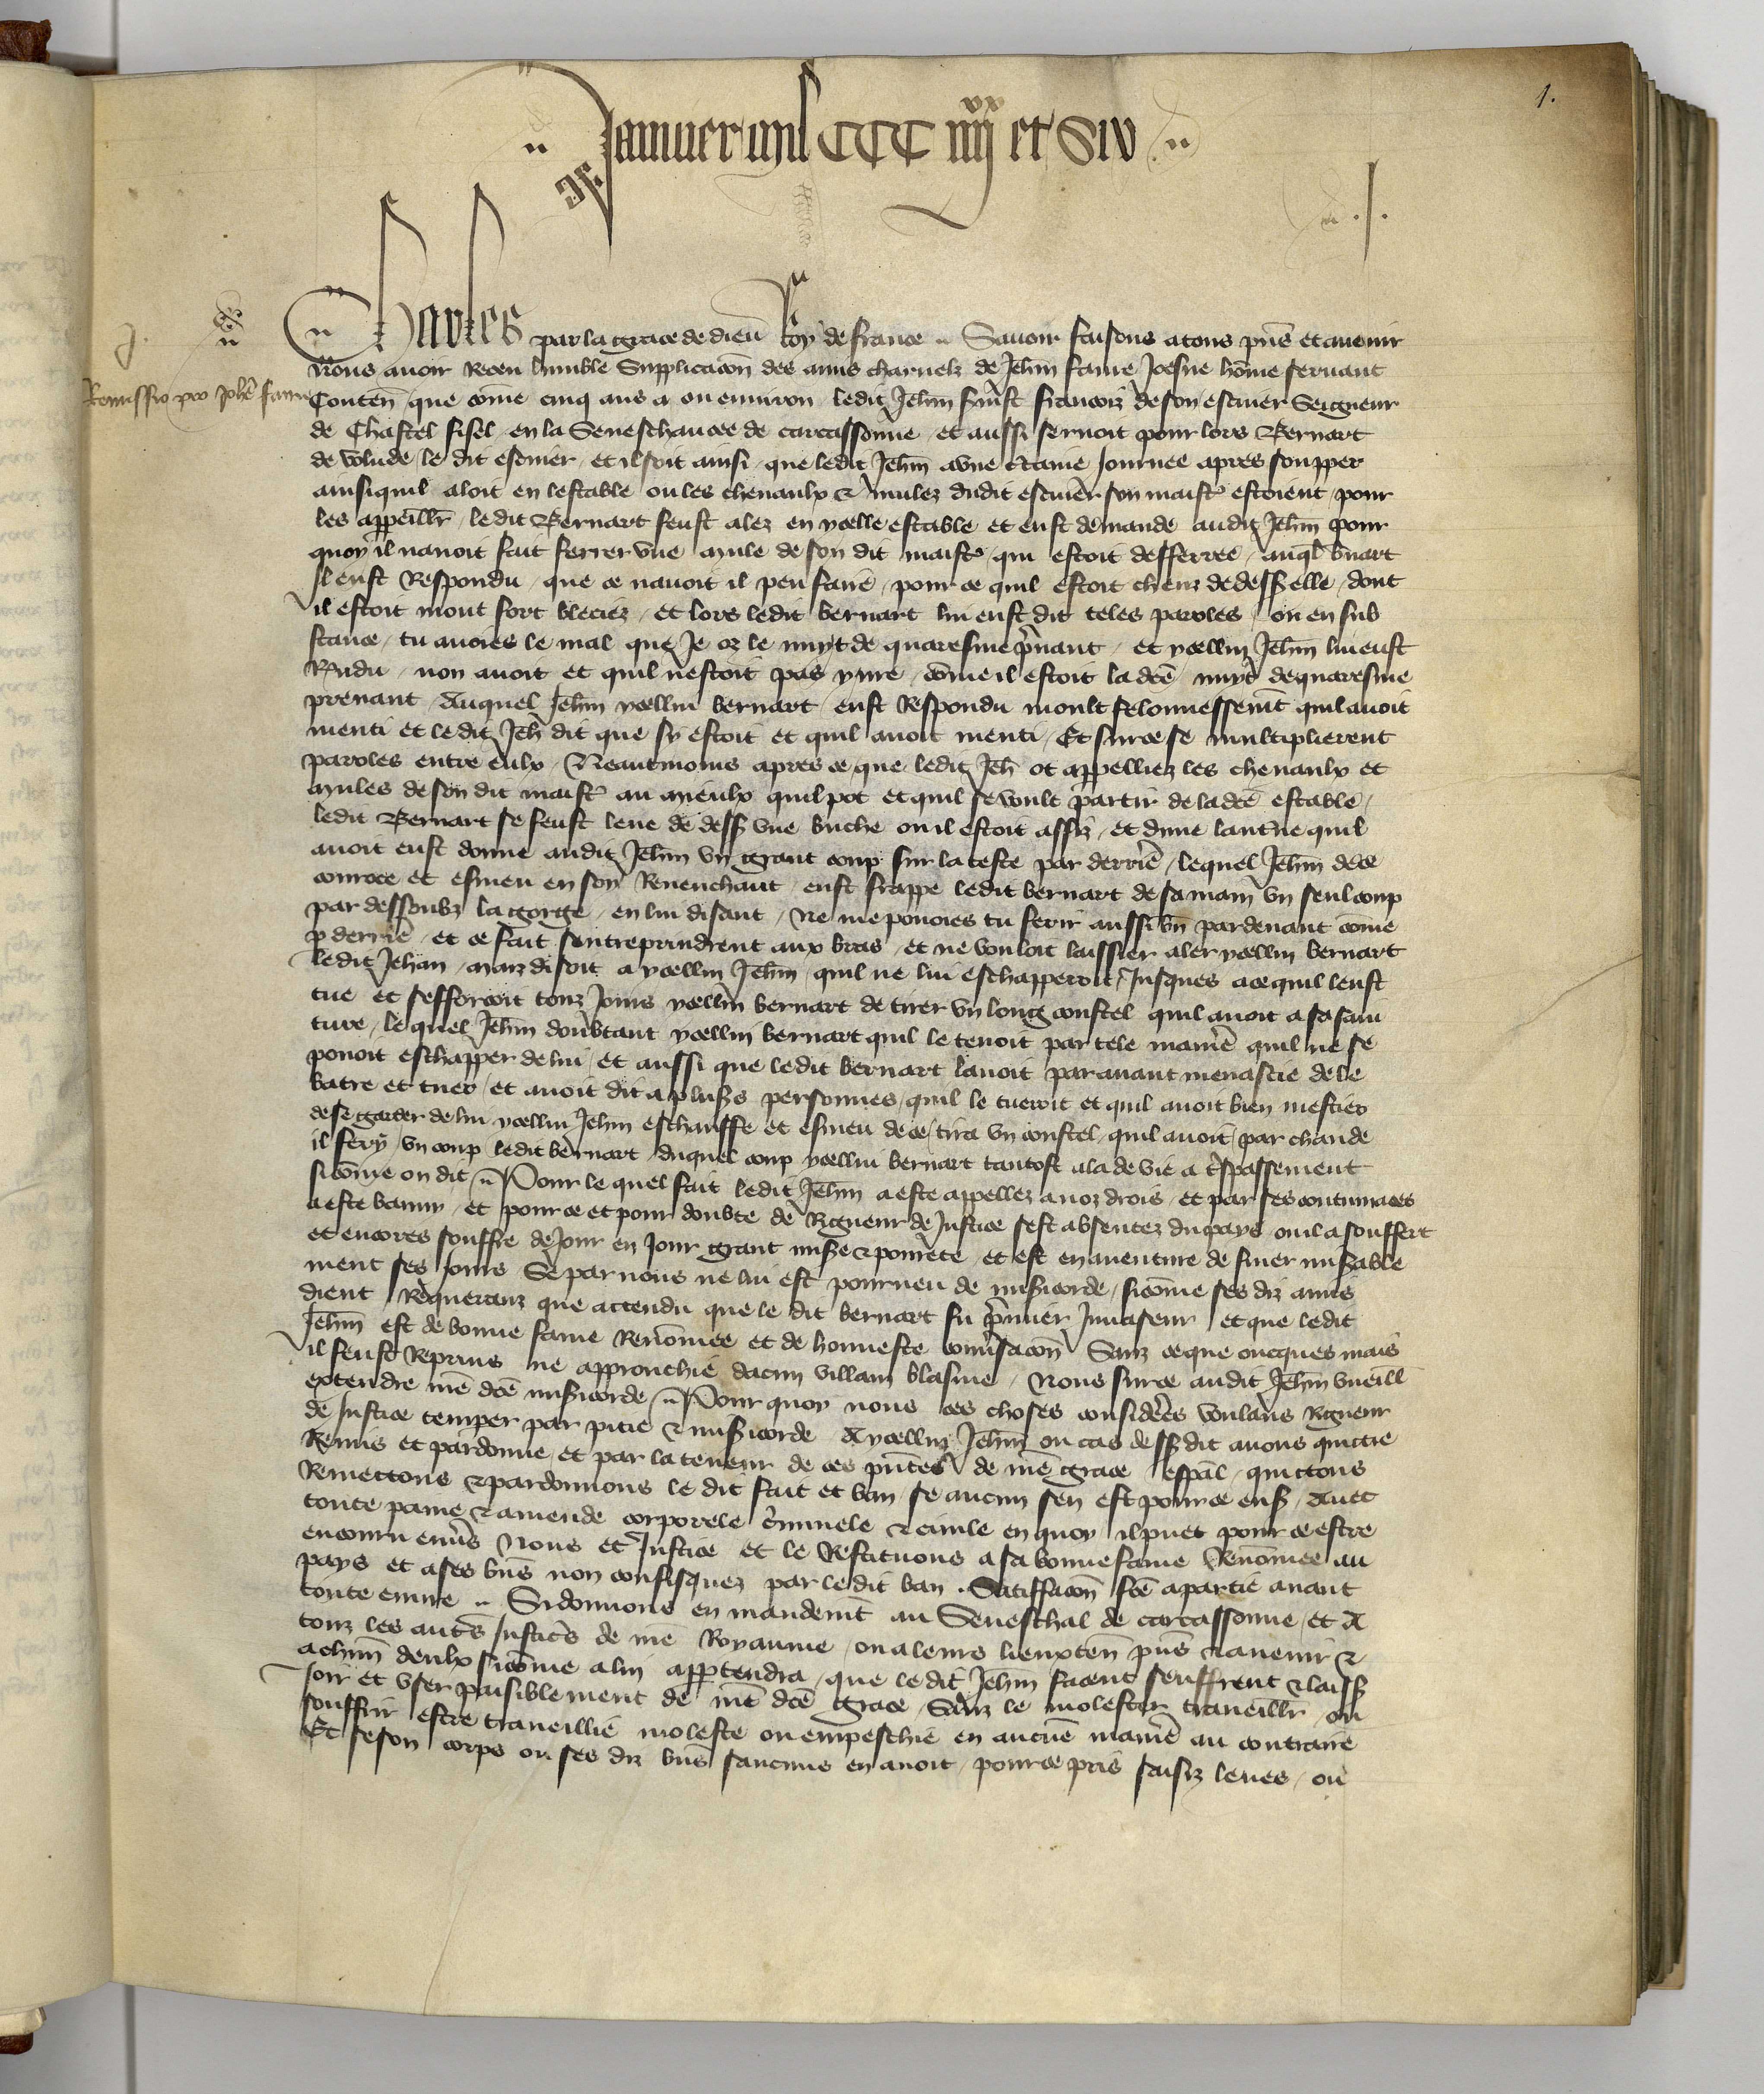 1.
Januier mil CCC iiii xx et Six
.I.
Charles par la grace de dieu Roy de france Sauoir faisons a tous pn̄s et auenir
Nous auoir Receu humble Supplicacōn des amis charnelz de Jeh̄n fame Joesne hōme seruant
Remissio pro Joh̄e fame
Conten̄ que cōme cinq ans a ou enuiron ledit Jeh̄n seruist francoiz de son escuier Seigneur
de Chastel fisel en la Seneschaucee de carcassonne et aussi seruoit pour lors Bernart
de volude le dit escuier et il soit ainsi que ledit Jeh̄n a vne c̄taine Journee apres soupper
ainsi quil aloit en lestable ou les cheuaulx & mulez dudit escuier son maistr̄ estoient pour
les appeillr̄ le dit Bernart feust alez en ycelle estable et eust demande audit Jeh̄n pour
quoy il nauoit fait ferrer vne mule de son dit maistr̄ qui estoit defferree auql̄ b̄nart
Il eust Respondu que ce nauoit il peu faire pour ce quil estoit cheuz de dess elle dont
il estoit mout fort bleciez et lors ledit bernart lui eust dit teles paroles ou en sub
stance tu auoies le mal que Je oz le nuyt de quaresme p̄nant et ycellui Jeh̄n lui eust
Rn̄du non auoit et quil nestoit pas yure cōme il estoit la dc̄e nuyt de quaresme
prenant Auquel Jeh̄n ycellui bernart eust Respondu moult felonnessem̄t quil auoit
menti et le dit Jeh̄ dit que sy estoit et quil auoit menti Et sur ce se multiplierent
paroles entre eulx Neantmoins apres ce que ledit Jeh̄ ot appelliez les cheuaulx et
mules de son dit maistr̄ au mieulx quil pot et quil se voult partir de la dc̄e estable
ledit Bernart se feust leue de dess vne buche ou il estoit assiz et dune lant̄ne quil
auoit eust donne audit Jeh̄n vn grant coup sur la teste par derrier̄e lequel Jeh̄n de ce
courroce et esmeu en soy Reuenchant eust frappe ledit bernart de sa main vn seul coup
par dessoubz la gorge en lui disant Ne me pouoies tu ferir aussi bn̄ par deuant cōme
p derrier̄e et ce fait sentreprindrent aux bras et ne vouloit laissier aler ycellui bernart
ledit Jehan maiz disoit a ycellui Jeh̄n quil ne lui eschapperoit Jusques a ce quil leust
tue et sefforcoit touz Jours ycellui bernart de tirer vn long coustel quil auoit a sa sain
ture lequel Jeh̄n doubtant ycellui bernart quil le tenoit par tele manier̄e quil ne se
pouoit eschapper de lui et aussi que ledit bernart lauoit parauant menacie de le
batre et tuer et auoit dit a plus̄s personnes quil le tueroit et quil auoit bien mestier
de se garder de lui ycellui Jehn eschauffe et esmeu de ce tira vn coustel quil auoit par chaude
il fery vn coup ledit bernart duquel coup ycellui bernart tantost ala de vie a tr̄spassement
si cōme on dit Pour le quel fait ledit Jeh̄n a este appellez a noz drois et par ses contumaces
a este banny et pour ce et pour doubte de Rigueur de Justice sest absentez du pays ou il a souffert
et encores souffre de Jour en Jour grant mis̄e & pourete et est en auenture de finer mis̄able
ment ses Jours Se par nous ne lui est pourueu de mis̄icorde si cōme ses diz amis
dient Requeranz que attendu que le dit bernart fu p̄mier Inuaseur et que ledit
Jeh̄n est de bonne fame Renōmee et de honneste conūsacōn Sanz ce que oncques mais
il feust Reprins ne approuchie daucun villain blasme Nous sur ce audit Jeh̄n vueill
extendre nr̄e dc̄e mis̄icorde Pour quoy nous ces choses considerees voulans Rigueur
de Justice temper par pitie & mis̄icorde A ycellui Jeh̄n ou cas dess dit auons quictie
Remis et pardonne et par la teneur de ces pn̄tes de nr̄e grace esp̄al quictons
Remettons & pardonnons le dit fait et ban se aucun sen est pour ce ens̄ Auec
toute paine & amende corporele c̄minele & ciuile en quoy il puet pour ce estre
encouru enu̅s Nous et Justice et le Restituons a sa bonne fame Renōmee au
pays et a ses bn̄s non confisquez par le dit ban . Satiffacōn fc̄e a partie auant
toute euure Si donnons en mandem̄t au Seneschal de carcassonne et a
touz les autr̄s Justic̄s de nr̄e Royaume ou a leurs lieuxten̄ pn̄s & auenir &
a chun̄ deulx si cōme a lui appartendra que le dit Jeh̄n facent seuffrent & laiss
Joir et vser paisiblement de nr̄e dc̄e grace Sanz le molester traueillr̄ ou
souffrir estre traueillie moleste ou empeschie en aucune manier̄e au contraire
Et se son corps ou ses diz bn̄s saucuns en auoit pour ce pris saisiz leues ou